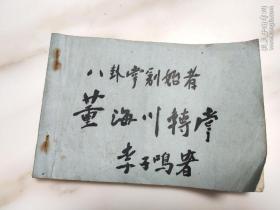 八卦掌创始者
董海川轉掌
李子鸣著